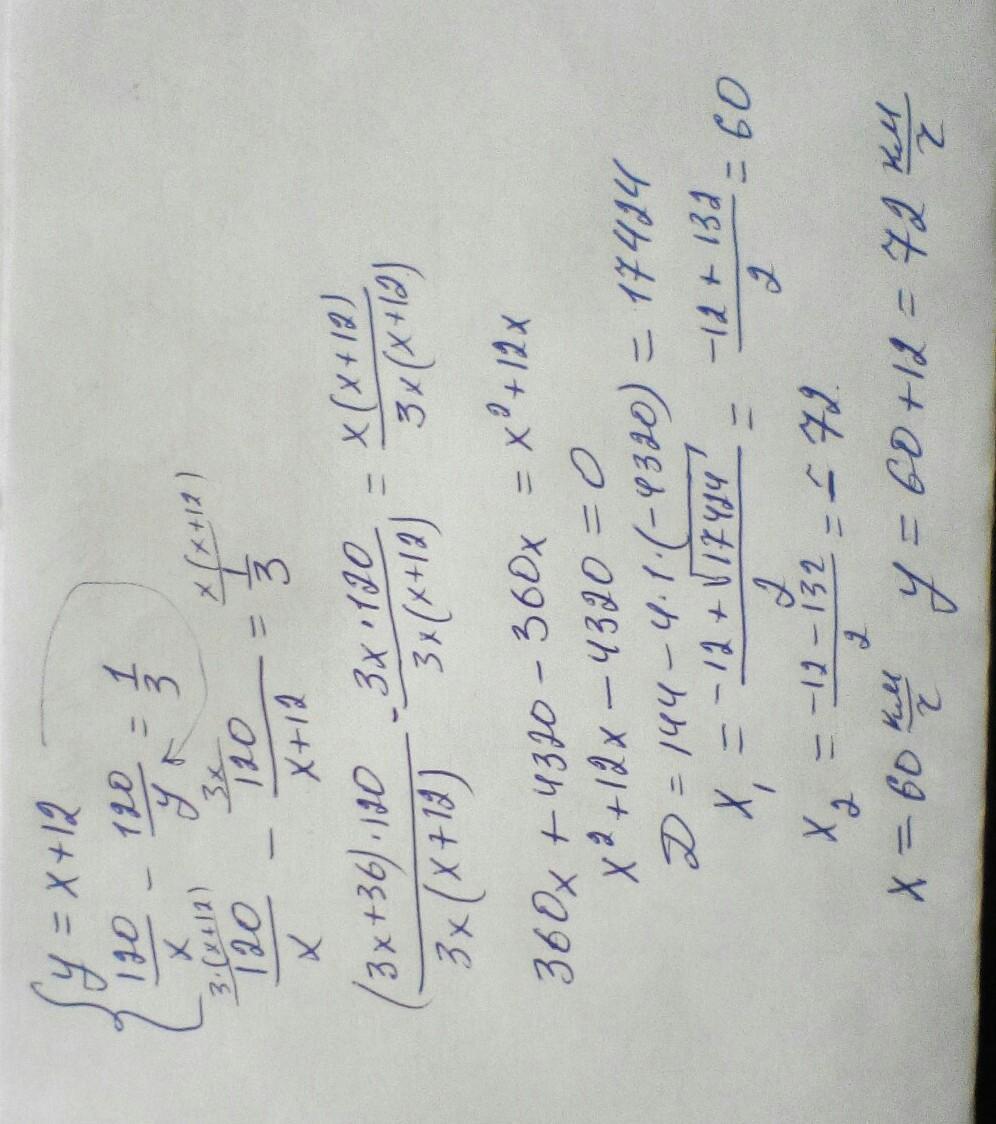 { y = x + 12
120/x - 120/y = 1/3
3·(x+12) 3x x(x+12)
120/x - 120/(x+12) = 1/3
(3x+36)·120/3x(x+12) - 3x·120/3x(x+12) = x(x+12)/3x(x+12)
360x + 4320 - 360x = x² + 12x
x² + 12x - 4320 = 0
D = 144 - 4·1·(-4320) = 17424
x₁ = (-12 + √17424)/2 = (-12 + 132)/2 = 60
x₂ = (-12 - 132)/2 = -72
x = 60 км/ч y = 60 + 12 = 72 км/ч